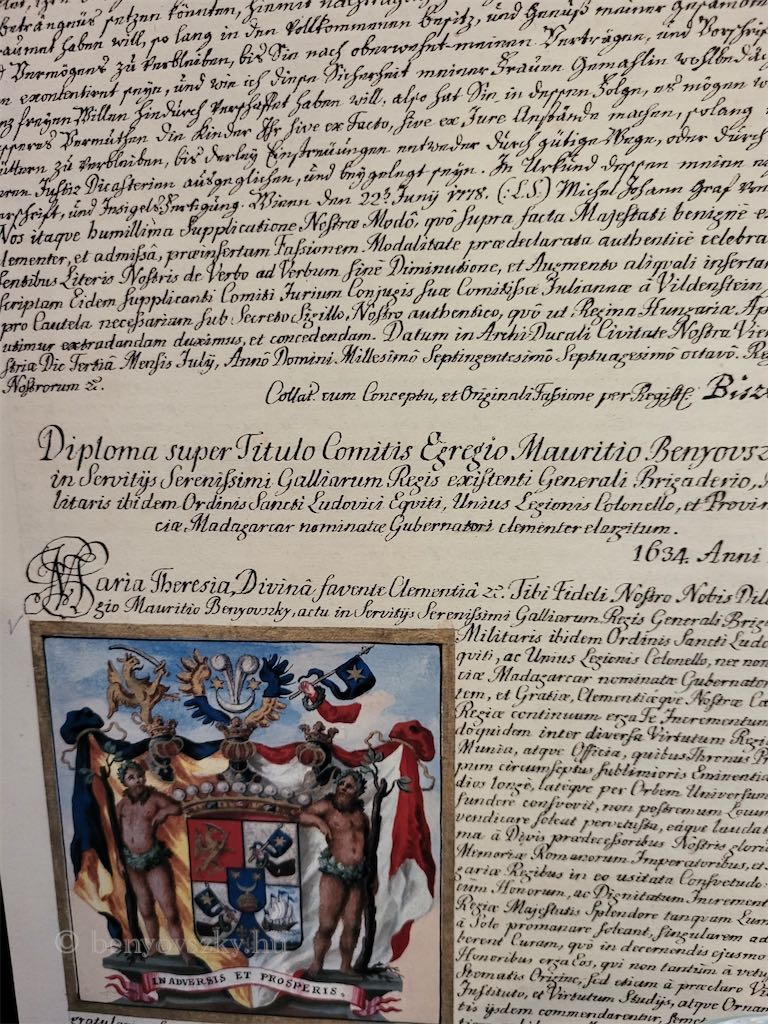 Beträngnus setzen könnten, hiemit nachträg
raumet haben will, so lang in den Vollkommenen Besitz, und Genuß meiner gesamten
Vermögens zu verbleiben, bis Sie nach oberwehnt-meinen Verträgen, und Vorschri
exontentiret seyn, und wie ich diese Sicherheit meiner Frauen Gemahlin wohlbedäc
freyen Willen hindurch verschaffet haben will, also hat Sie in dessen Folge, es mögen
Vermuthen die Kinder Ihr sive ex Facto, sive ex Jure Anstände machen, so lang
zu verbleiben, bis derley Einstreuungen entweder durch gütige Wege, oder durch
Justiz Dicasterien ausgeglichen, und beygelegt seyn. In Urkund dessen meine
und Insigels Fertigung. Wienn den 22t. Junij 1778. (:L.S:) Michel Johann Graf von
Nos itaque humillima Supplicatione Nostræ Modô, quô supra facta Majestati benignè
lementer, et admissâ, præinsertam Fassionem Modalitate prædeclarata authenticè celebra
sentibus Literis Nostris de Verbo ad Verbum sinè Diminutione, et Augmento aliquali insertam
scriptam Eidem Supplicanti Comiti Jurium Conjugis suæ Comitissæ Juliannæ à Vildenstein
pro Cautela necessarium sub Secreto Sigillo Nostro authentico, quô ut Regina Hungariæ Ap
utimur extradandam duximus, et concedendam. Datum in Archi-Ducali Civitate Nostra Vien
striæ Die Tertiâ Mensis Julij, Annô Domini Millesimô Septingentesimô Septuagesimô octavô. Re
Nostrorum &c.
Collat. cum Conceptu, et Originali Fassione per Regist.
Diploma super Titulo Comitis Egregio Mauritio Benyovsz
in Servitijs Serenissimi Galliarum Regis existenti Generali Brigaderio,
litaris ibidem Ordinis Sancti Ludovici Equiti, Unius Legionis Colonello, et Provin
ciæ Madagarcar nominatæ Gubernatori clementer elargitum.
1634. Anni
Maria Theresia, Divinâ favente Clementiâ &c. Tibi Fideli Nostro Nobis Dil
gio Mauritio Benyovszky, actu in Servitijs Serenissimi Galliarum Regis Generali Brig
Militaris ibidem Ordinis Sancti Ludo
quiti, ac Unius Legionis Colonello, nec non
ciæ Madagarcar nominatæ Gubernator
tem, et Gratiæ, Clementiæque Nostræ Cæ
Regiæ continuum erga Te Incrementum
dôquidem inter diversa Virtutum Regi
Munia, atque Officia, quibus Thronus Pr
pum circumseptus sublimioris Eminentiæ
dios longè, latèque per Orbem Universum
fundere consvevit, non postremum Locum
vendicare soleat pervetusta, eaque laudat
ma à Divis prædecessoribus Nostris glorio
Memoriæ Romanorum Imperatoribus, et
gariæ Regibus in eo usitata Consvetudo
eûm Honorum, ac Dignitatum Increment
Regiæ Majestatis Splendore tanquam Lum
à Sole promanare soleant, singularem ad
berent Curam, quô in decernendis ejusmo
Honoribus erga Eos, qui non tantùm à vetu
Stematis Origine, sed etiam à præclaro Vi
Instituto, et Virtutum Studijs, atque Ornam
tis ijsdem commendarentur,
IN ADVERSIS ET PROSPERIS.
© benyovszky.hu